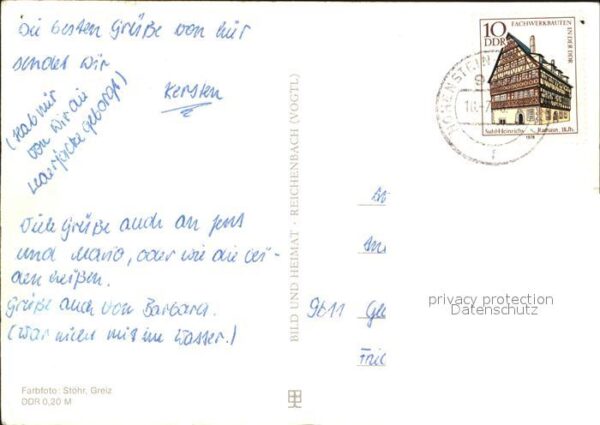 Die besten Grüße von hier
sendet Dir
Kersten
(Hab mir
von Dir die
geborgt)
Viele Grüße auch an Jens
und Mario, oder wie die bei-
den heißen.
Grüße auch von Barbara.
(War nicht mit im Wasser.)
Farbfoto: Stöhr, Greiz
DDR 0,20 M
BILD UND HEIMAT · REICHENBACH (VOGTL)
10
DDR
FACHWERKBAUTEN
IN DER DDR
Suhl-Heinrichs
Rathaus, 16. Jh.
1978
HOHENSTEIN
9611
privacy protection
Datenschutz